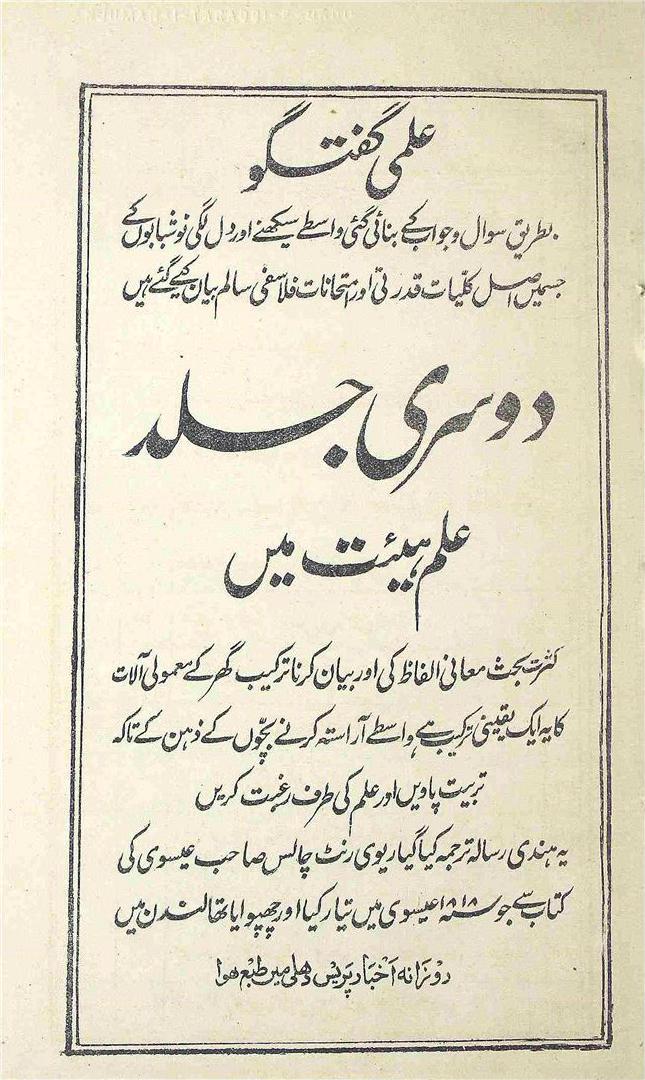 علمی گفتگو
بطریق سوال وجواب کے بنائی گئی واسطے سیکھنے اور دل لگی نوشبابوں کے
جسمیں اصل کلّیات قدرتی اور امتحانات فلاسفی سالم بیان کیے گئے ہیں
دوسری جلد
علم ہیئت میں
کثرت بحث معانی الفاظ کی اور بیان کرنا ترکیب گھر کے معمولی آلات
کا یہ ایک یقینی ترکیب ہے واسطے آراستہ کرنے بچّوں کے ذہن کے تاکہ
تربیت پاویں اور علم کی طرف رغبت کریں
یہ ہندی رسالہ ترجمہ کیا گیا ریوی رنٹ چالس صاحب عیسوی کی
کتاب سے جو سنہ ۱۸۱۸ عیسوی میں تیار کیا اور چھپوایا تھا لندن میں
روزانہ اخبار پریس دهلی میں طبع هوا